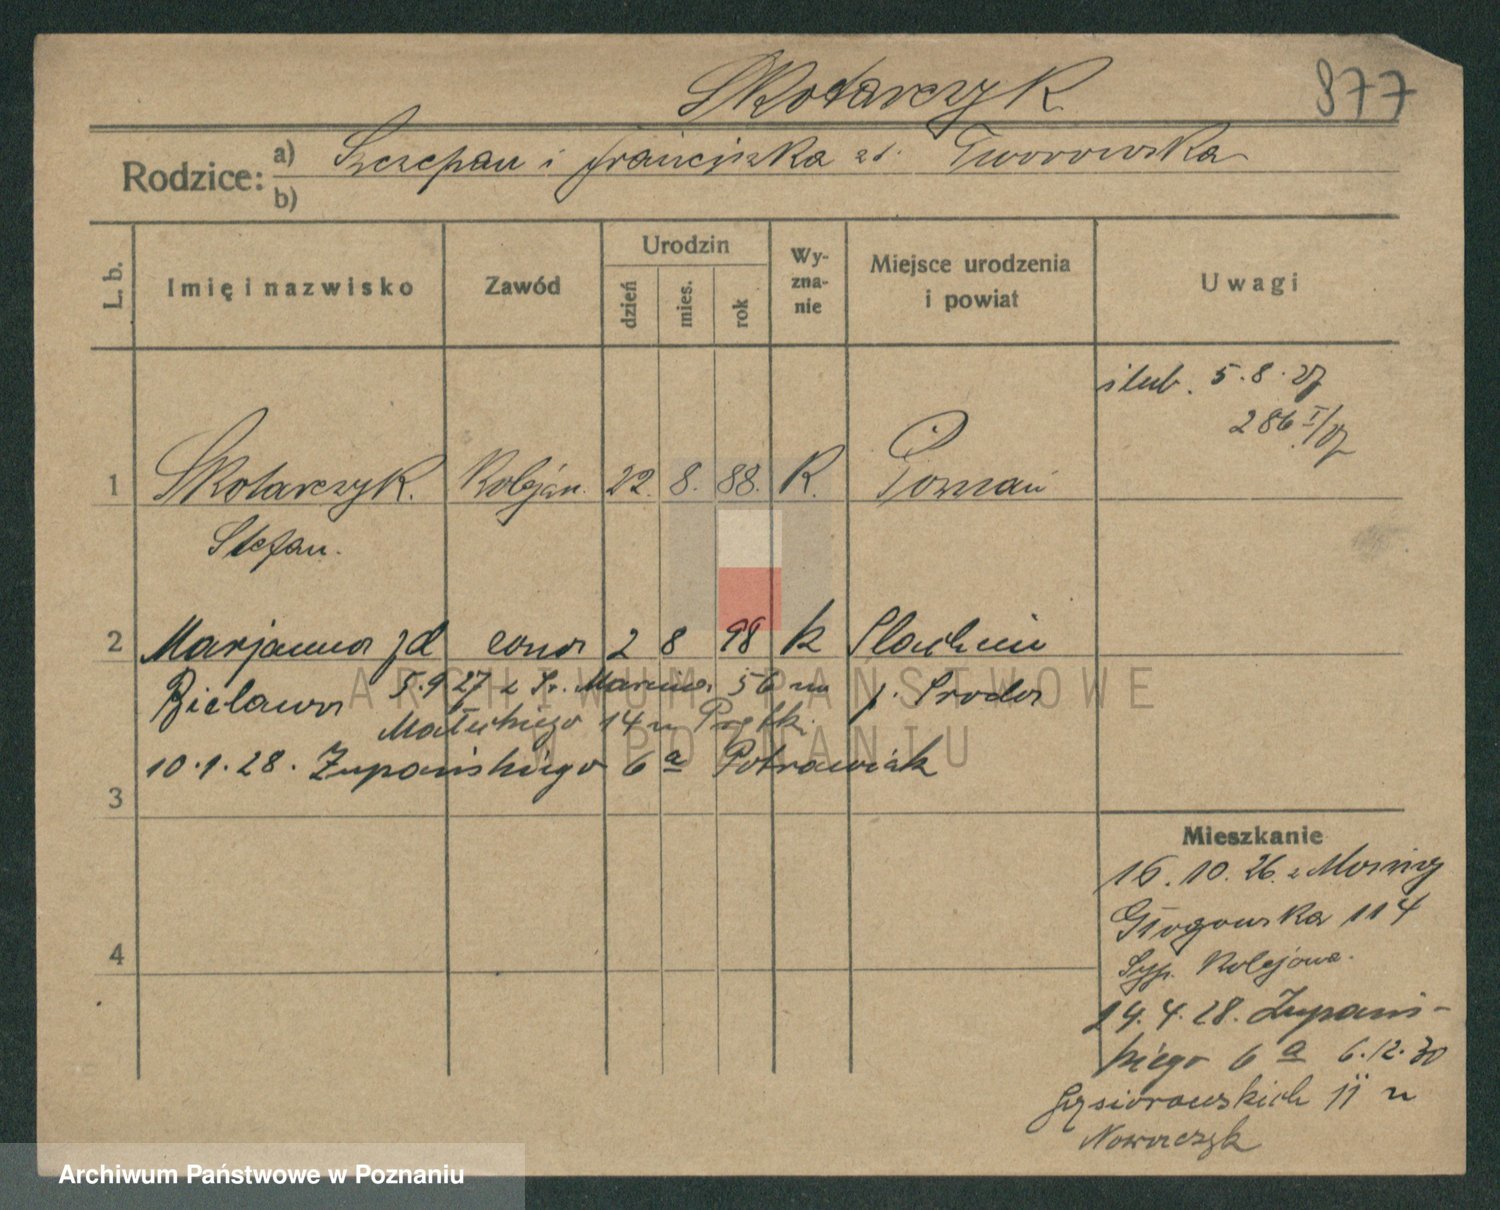 Skotarczyk
877
Rodzice: a) Szczepan i Franciszka zd. Tworowska
b)
L. b.
Imię i nazwisko
Zawód
Urodzin
dzień
mies.
rok
Wy-
zna-
nie
Miejsce urodzenia
i powiat
Uwagi
ślub. 5.8.27
286 I/27
1 Skotarczyk Kolejarz. 22. 8. 88. K. Poznań
Stefan.
2 Marjanna zd żona 2 8 98 k
Bielawa 5.9 27 z Św. Marcina 56 na p. Środa
Małeckiego 14 u
10.1.28. Żupańskiego 6 a Potrawiak
3
4
Mieszkanie
16.10.26. z
Głogowska 114
Kolejowa.
24.4.28. Żupańs-
kiego 6 a 6.12.30
Gąsiorowskich 11 u
Nowaczyk
ARCHIWUM PAŃSTWOWE
W POZNANIU
Archiwum Państwowe w Poznaniu